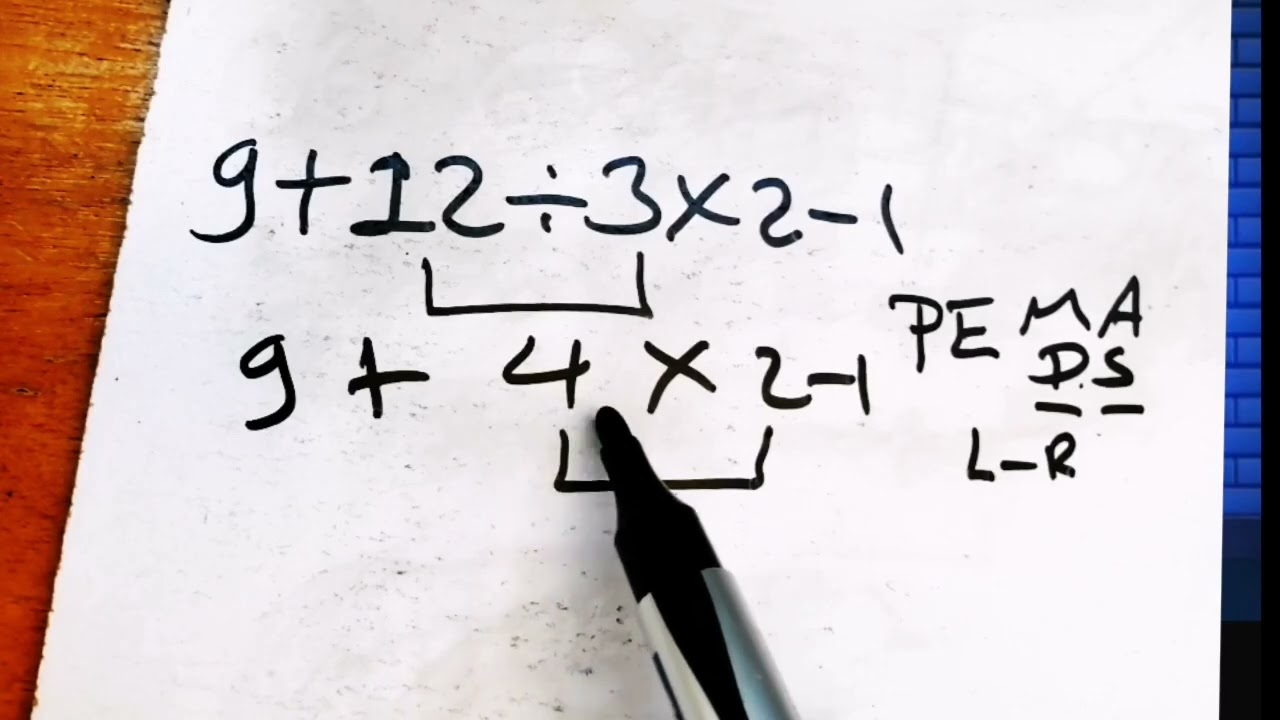 9+12÷3×2-1
9 + 4 × 2-1
PE M A
D.S
L-R